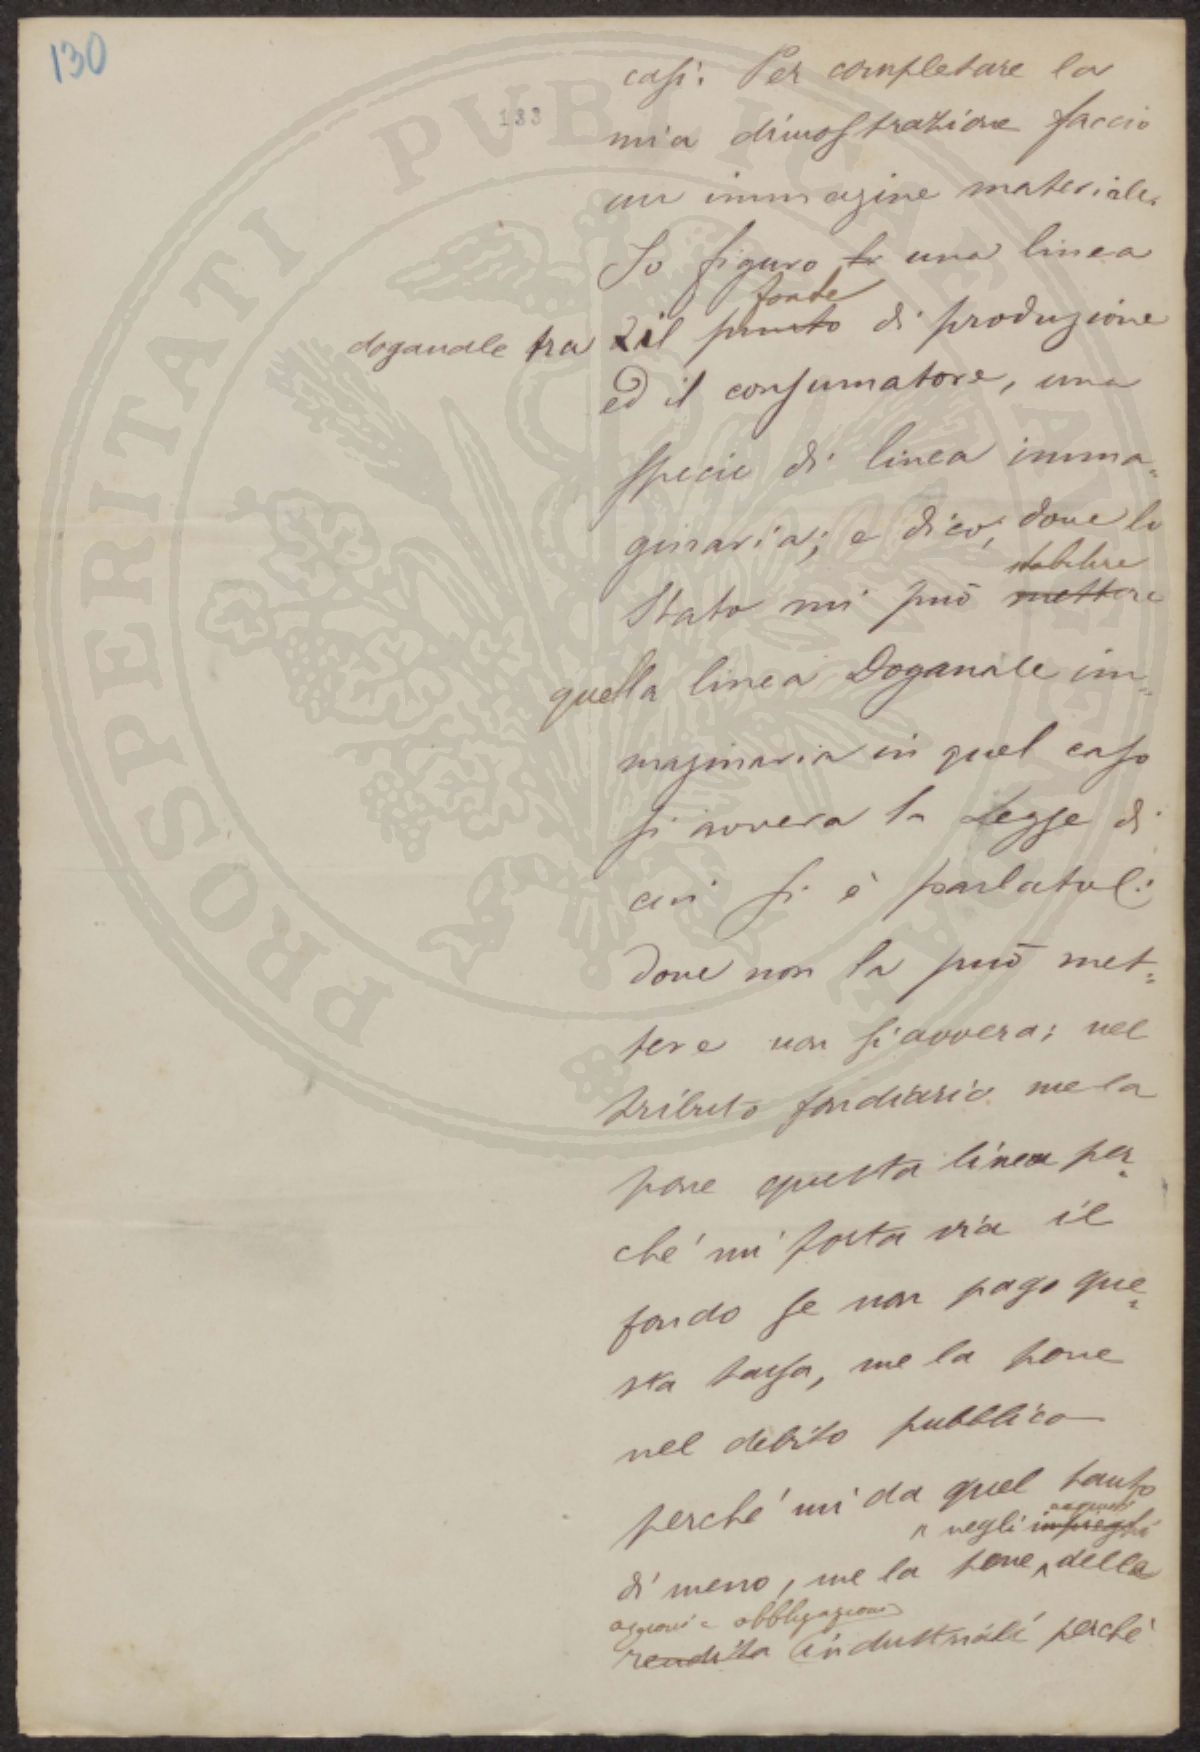 130
133
casi. Per completare la
mia dimostrazione faccio
un immagine materiale.
Io figuro la una linea
fonte
doganale tra il punto di produzione
ed il consumatore, una
specie di linea imma=
ginaria; e dico, dove lo
stabilire
Stato mi può mettere
quella linea Doganale im=
maginaria in quel caso
si avvera la Legge di
cui si è parlato:
dove non la può met=
tere non si avvera; nel
tributo fondiario me la
pone questa linea per=
ché mi porta via il
fondo se non pago que=
sta tassa, me la pone
nel debito pubblico
perché mi da quel tanto
negli impieghi
di meno, me la pone della
azioni e obbligazioni
rendita industriali perché
PROSPERITATI PVBLICAE AVGENDAE